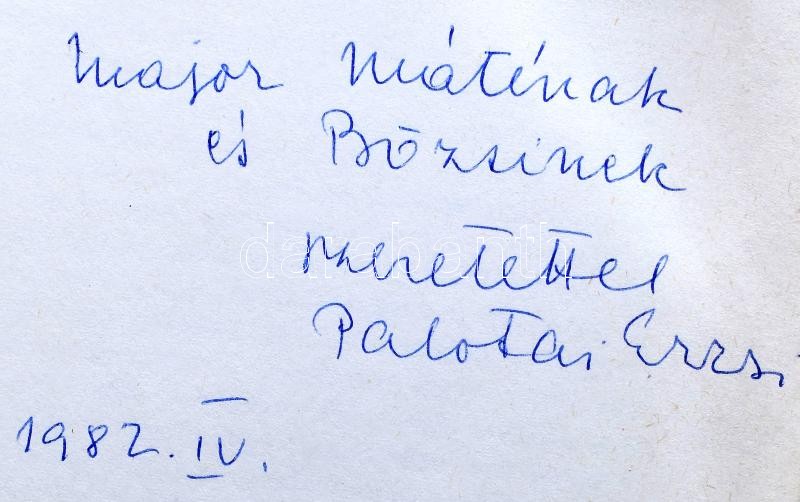 Major Máténak
és Bözsinek
szeretettel
Palotai Erzsi
1982. IV.
darabanth